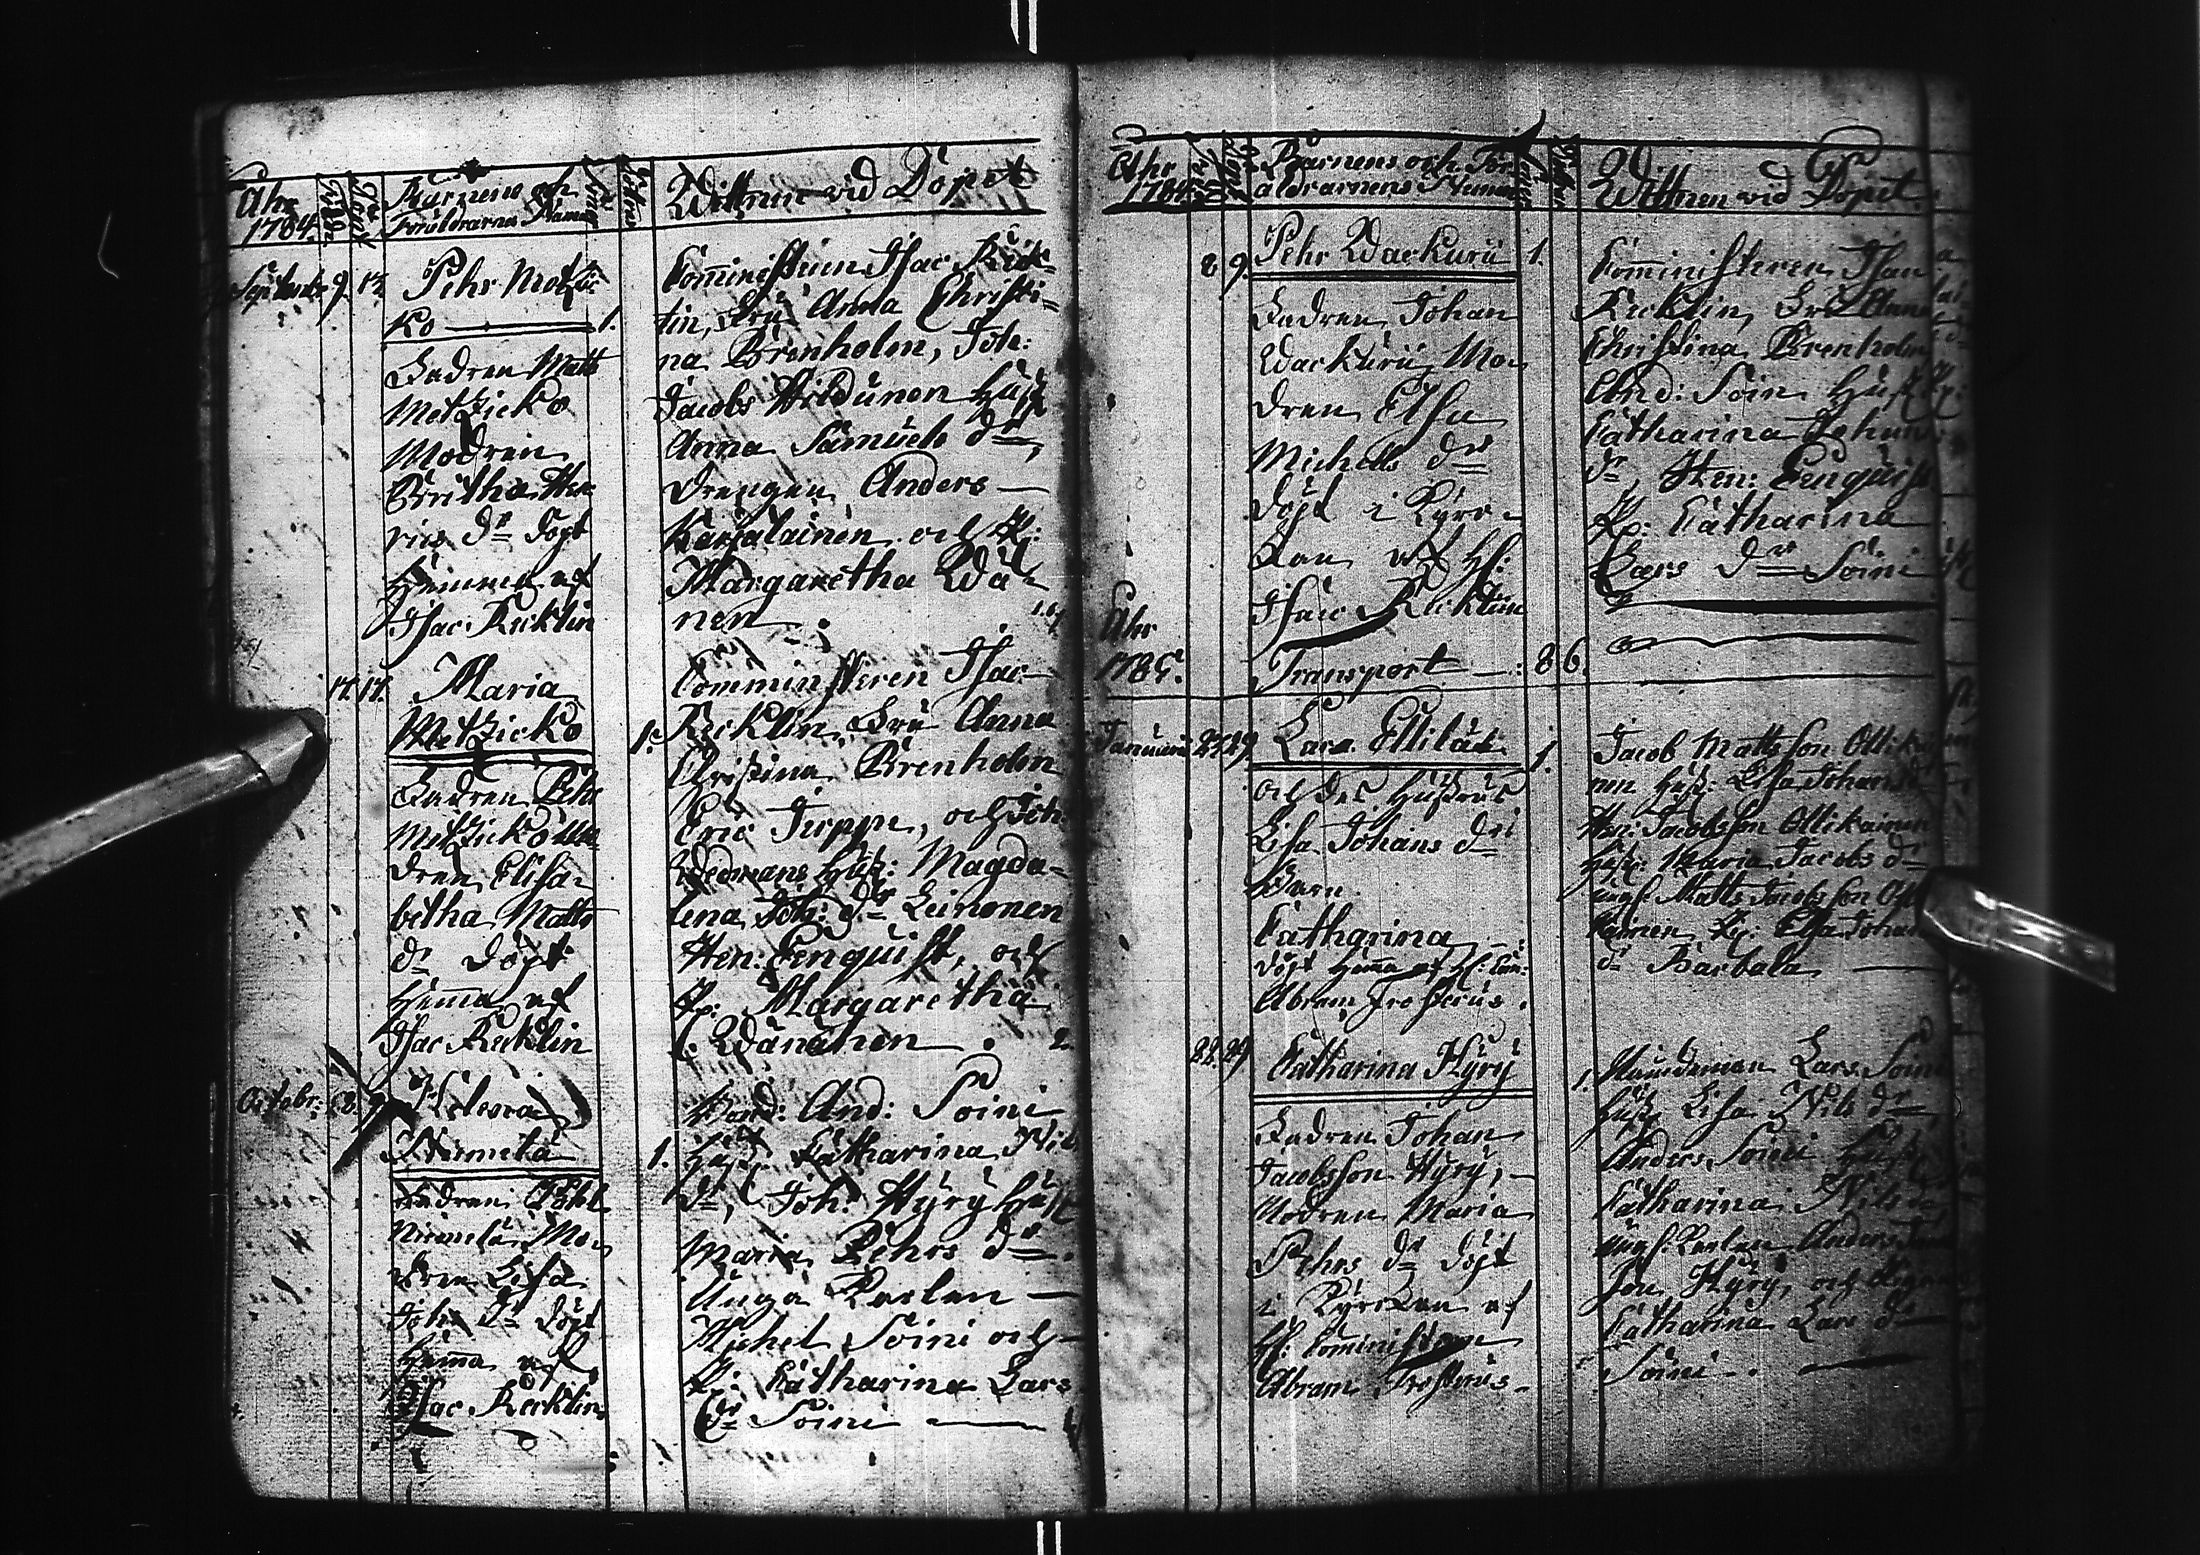 Åhr 1784. Barnens och Föräldrarnes Namn Wittnen vid Döpet
Septembr 9. Pehr Metzic
ko 1.
Fadren Matts
Metzicko
Modren
Britha Hen
rics dr Döpt
Hemma af
Isac Recklin
Comministern Isac Reck-
lin, Fru Anna Christi-
na Brenholm, Joh:
Jacobs Hildunen Hust
Anna Samuels dr,
Drengen Anders
Karialainen och Pig:
Margaretha Wä-
nen.
17. 17. Maria
Metzicko
Fadren Pehr
Metzicko Mo
dren Elisa
betha Matts
dr Döpt
Hemma af
Isac Recklin
Comministeren Isac
1. Recklin, Fru Anna
Christina Brenholm
Eric Jeppe, och Joh.
Hust: Magda-
lena Joh: dr Leinonen
Hen: Fenquist, och
Pig: Margaretha
Wänänen. 2.
Octobr: 8. 9. Helena
Niemelä
Fadren Pehr
Niemelä, Mo
dren Lisa
Joh: dr Döpt
Hemma af
Isac Recklin
And: Soini
1. Hust Catharina Nils
dr, Joh: Hyry Hust
Maria Pehrs dr.
Unga Karlen
Michel Soini och
Pig: Catharina Lars
dr Soini
Åhr 1784 Barnens och För
äldrarnens Namn Wittnen vid Döpet.
8 9. Pehr Wackuri 1.
Fadren Johan
Wackuri, Mo
dren Elsa
Michels dr
Döpt i Kyrc
kan af H:
Isac Recklin
Comministeren Isac
Recklin, Fru Anna
Christina Brenholm
And: Soini Hust
Catharina Johans
dr, Hen: Fenquist
Pig: Catharina
Lars dr Soini
Åhr
1785. Transport 8 6.
Januarii 22. 29 Lars Ellilä 1.
och des Hustrus
Lisa Johans dr
Barn
Catharina
Döpt Hemma af H: Com:
Abram Frosterus.
Jacob Matts son Ollikai
nen Hust: Lisa Johans d
Hen: Jacobs son Ollikainen
Hust: Maria Jacobs dr
Matts Jacobs son Olli
kainen Pig: Elsa Johans
dr Barbala
22. 29 Catharina Hyry
Fadren Johan
Jacobsson Hyry,
Modren Maria
Pehrs dr Döpt
i Kyrckan af
H: Comministren
Abram Frosterus.
1. Nämdeman Lars Soini
Hust Lisa Nils dr
Anders Soini Hust
Catharina Nils dr
Karlen Anders
son Hyry, och Pigan
Catharina Lars dr
Soini.